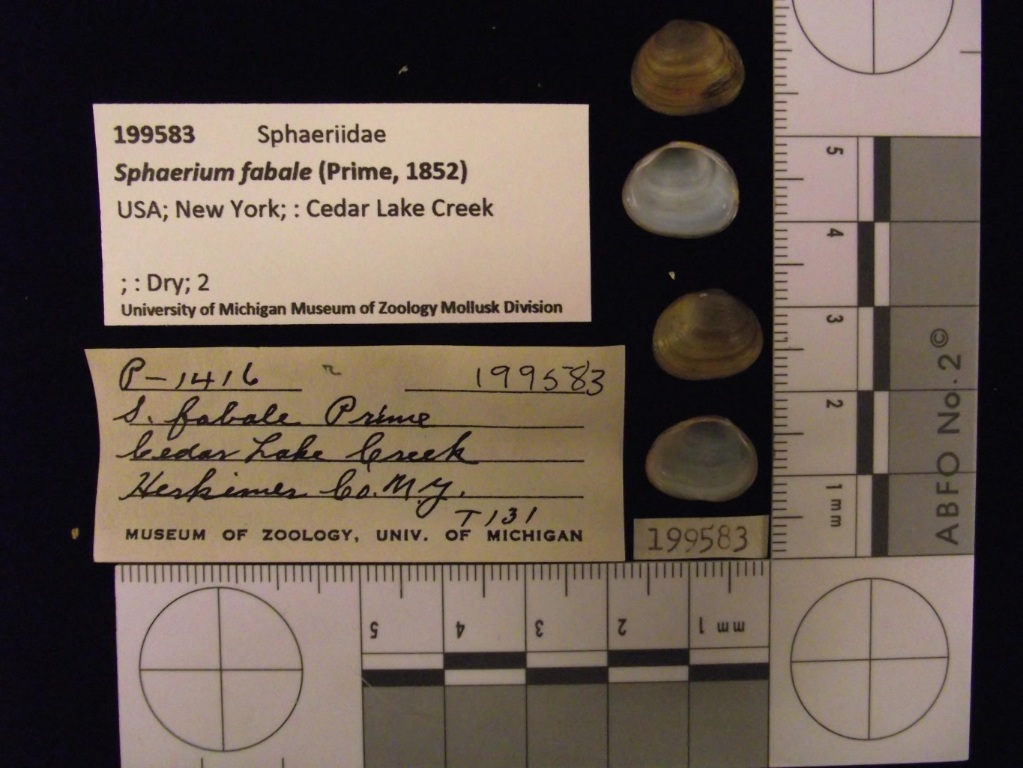 199583 Sphaeriidae
Sphaerium fabale (Prime, 1852)
USA; New York; : Cedar Lake Creek
; : Dry; 2
University of Michigan Museum of Zoology Mollusk Division
P-1416 199583
S. fabale Prime
Cedar Lake Creek
Herkimer Co. N.Y.
T131
MUSEUM OF ZOOLOGY, UNIV. OF MICHIGAN
199583
5
4
3
2
1 mm
ABFO No. 2 ©
5 4 3 2 1 mm